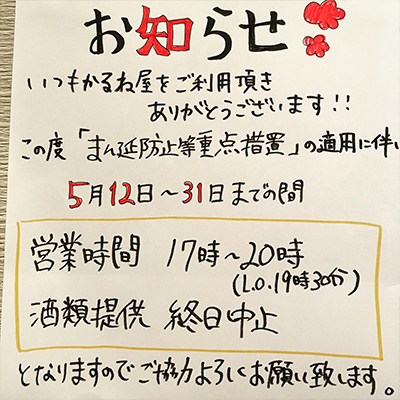 お知らせ
いつもかるね屋をご利用頂き
ありがとうございます!!
この度「まん延防止等重点措置」の適用に伴い
5月12日～31日までの間
営業時間 17時～20時
(L.O.19時30分)
酒類提供 終日中止
となりますのでご協力よろしくお願い致します。